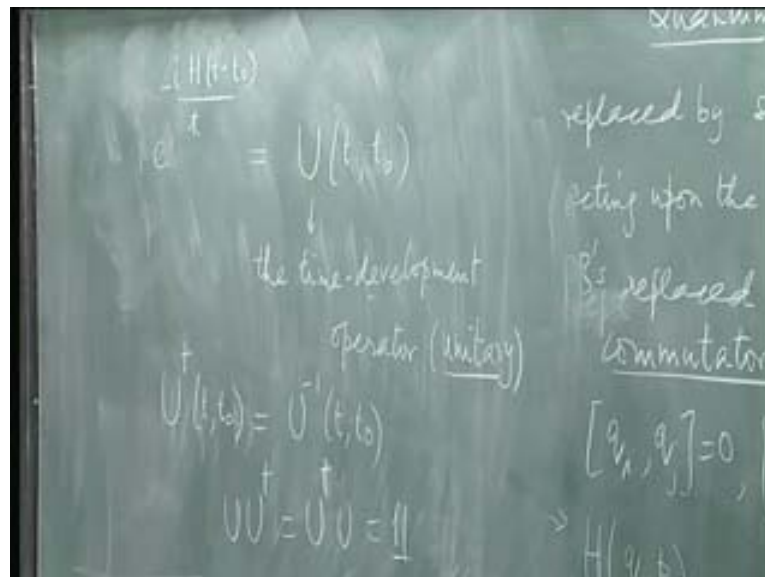 e^{-iH(t-t₀)/ħ} = U(t, t₀)
↓
the time-development
operator (unitary)
U†(t, t₀) = U⁻¹(t, t₀)
UU† = U†U = 𝟙
Quantum
replaced by
acting upon the
PB's replaced
commutator
[qᵢ, qⱼ] = 0,
H(q, p)